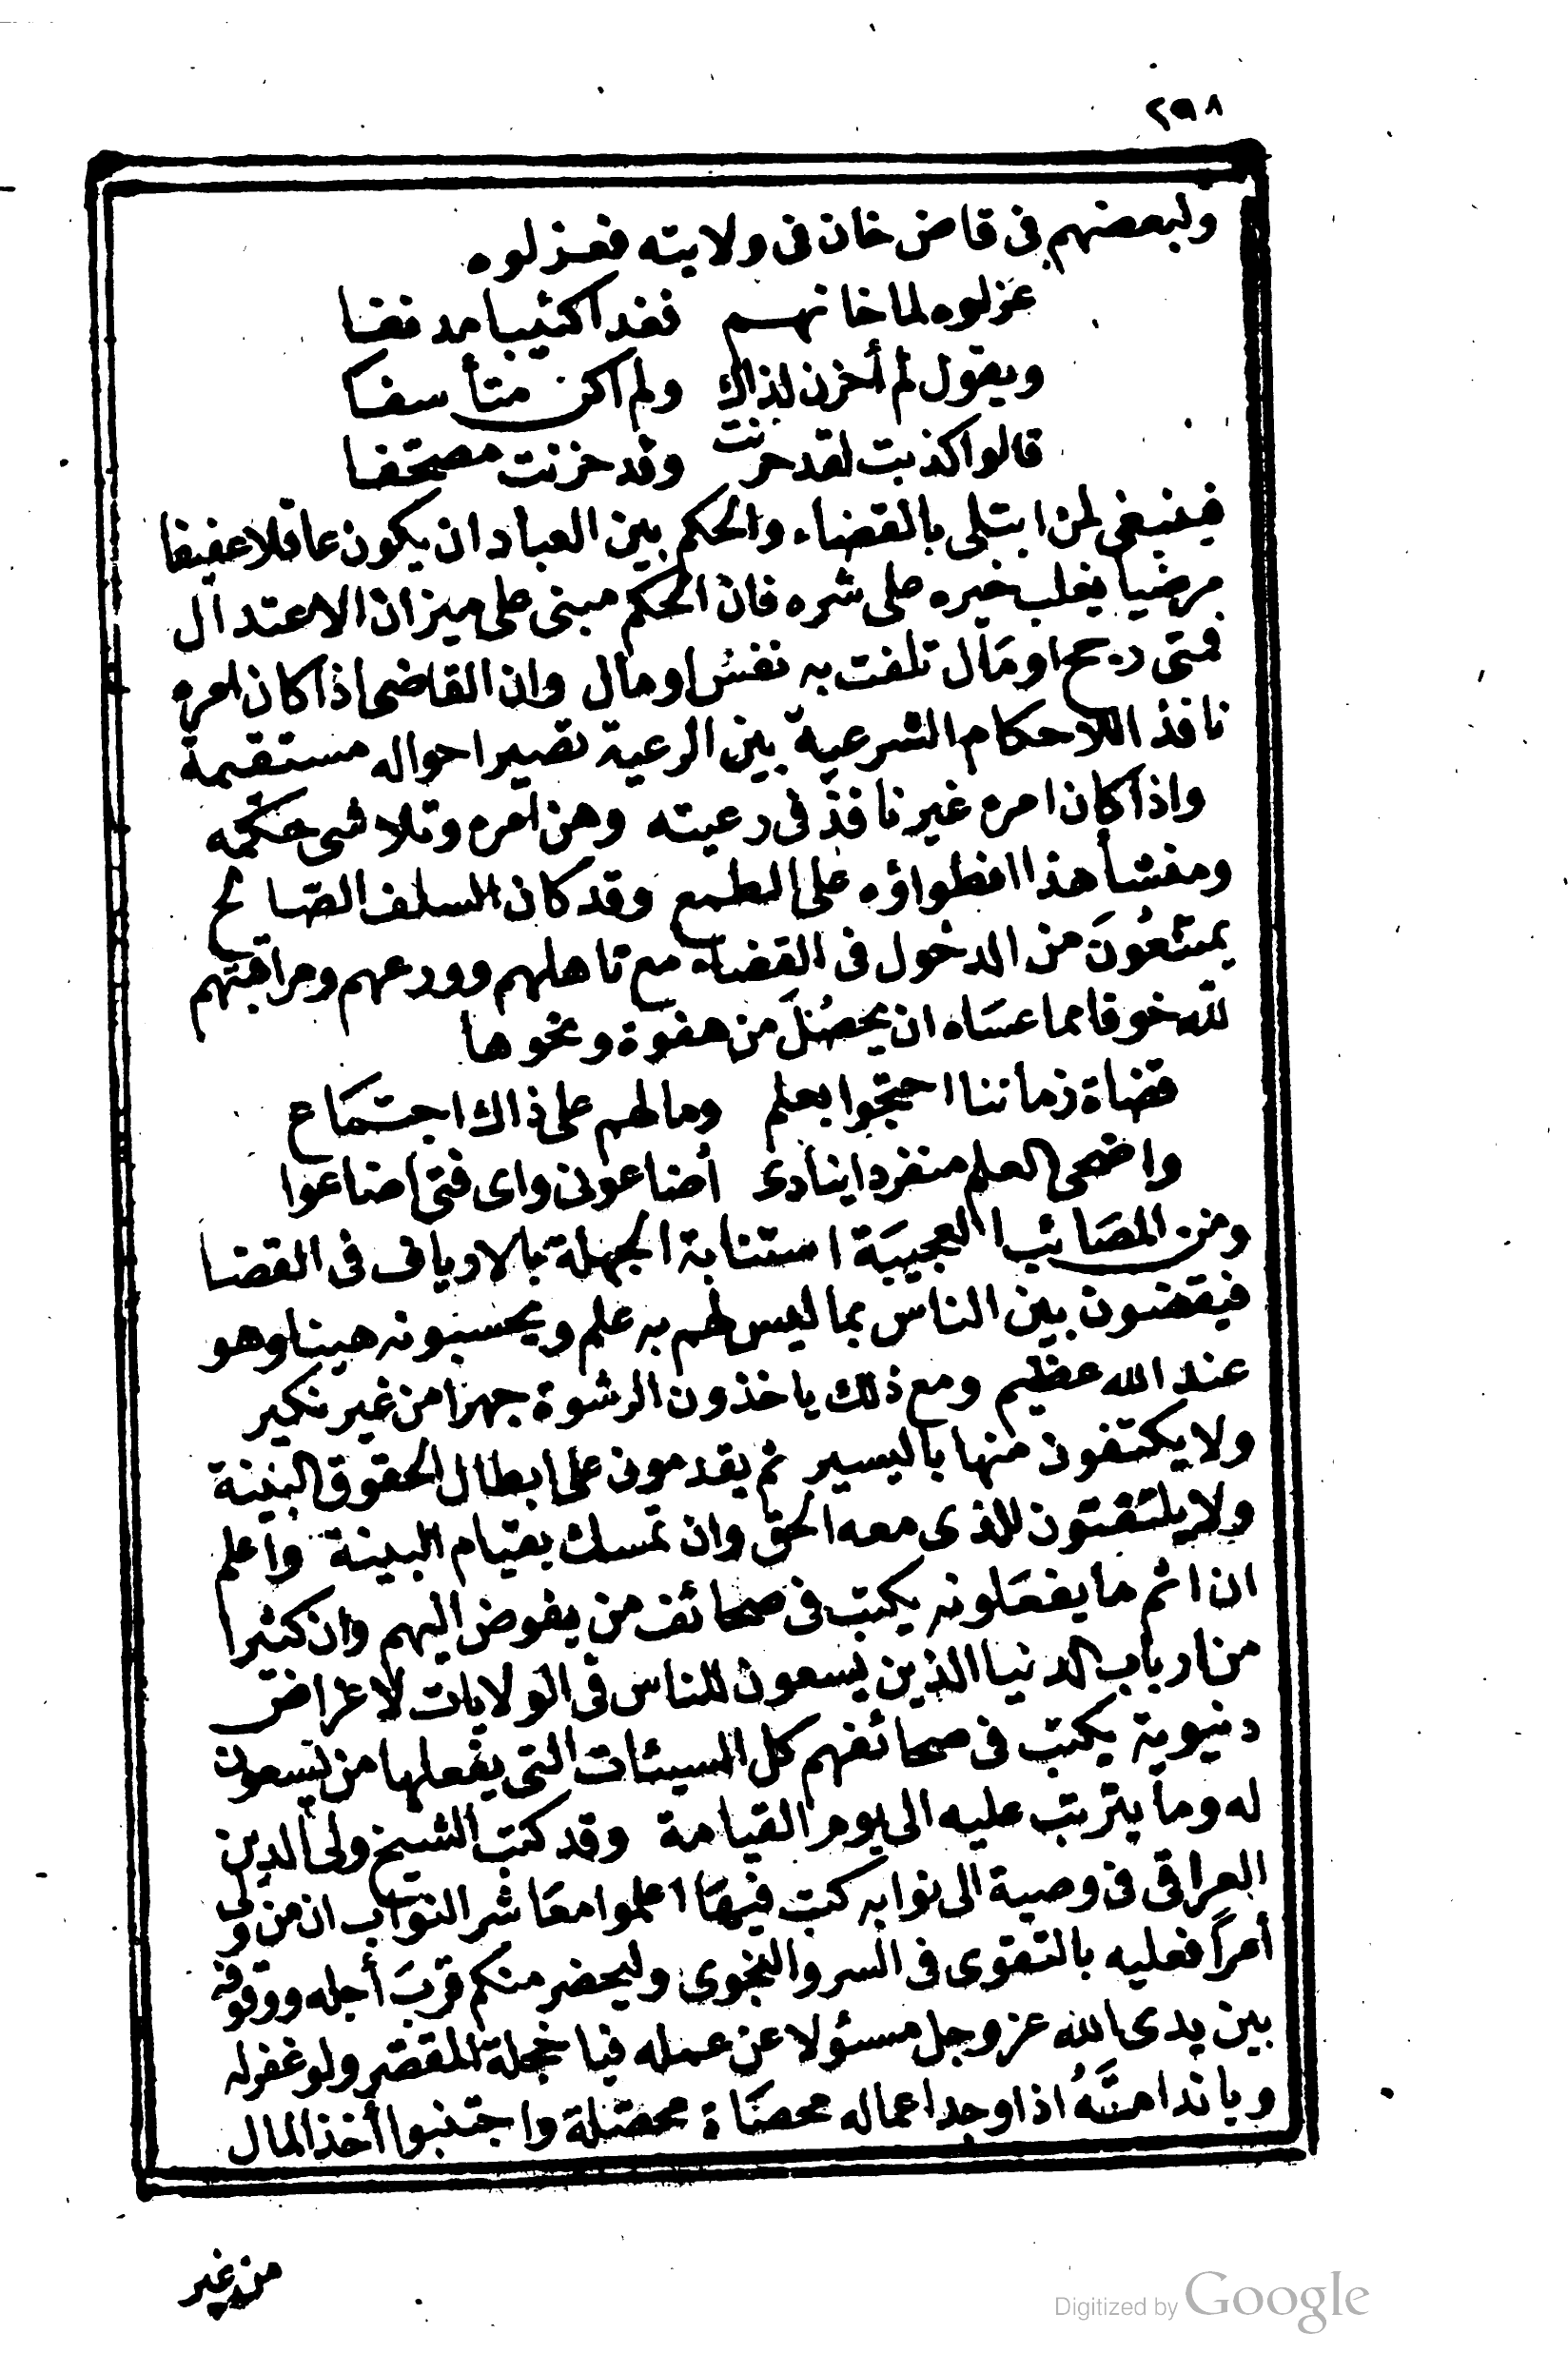 ٢٩٨
ولبعضهم فى قاض خان فى ولايته فعزلوه
عزلوه لما خانهم فغدا كئيبا مدنفا
ويقول لم أحزن لذاك ولم اكن متأسفا
قالوا كذبت لقد حزنت وقد خزنت مصحفا
فينبغى لمن ابتلى بالقضاء والحكم بين العباد ان يكون عاقلا عفيفا
مرضيا يغلب خيره على شره فان الحكم مبنى على ميزان الاعتدال
فمتى رجح او مال تلفت به نفس او مال وان القاضى اذا كان امره
نافذ اللاحكام الشرعية بين الرعية تصير احواله مستقيمة
واذا كان امره غير نافذ فى رعيته وهن امره وتلاشى حكمه
ومنشأ هذا انطواؤه على الطمع وقد كان السلف الصالح
يمتنعون من الدخول فى القضاء مع تاهلهم وورعهم ومراقبتهم
لله خوفا مما عساه ان يحصل من هفوة ونحوها
قضاة زماننا احتجوا بعلم ومالهم على ذاك اجتماع
واضحى العلم منفردا ينادى أضاعونى واى فتى اضاعوا
ومن المصائب العجيبة استنابة الجهلة بالارياف فى القضا
فيقضون بين الناس بما ليس لهم به علم ويحسبونه هينا وهو
عند الله عظيم ومع ذلك ياخذون الرشوة جهرا من غير نكير
ولا يكتفون منها باليسير ثم يقدمون على ابطال الحقوق البينة
ولا يلتفتون للذى معه الحق وان تمسك بقيام البينة واعلم
ان اثم ما يفعلونه يكتب فى صحائف من يفوض اليهم وان كثيرا
من ارباب الدنيا الذين يسعون للناس فى الولايات لاغراض
دنيوية يكتب فى صحائفهم كل السيئات التى يفعلها من يسعون
له وما يترتب عليه الى يوم القيامة وقد كتب الشيخ ولى الدين
العراقى فى وصية الى نوابه كتب فيها اعلموا معاشر النواب ان من ولى
أمرا فعليه بالتقوى فى السر والنجوى وليحضر منكم قرب أجله ووقوفه
بين يدى الله عز وجل مسئولا عن عمله فيا خجلة المقصر ولو غفر له
ويا ندامته اذا وجد اعماله محصاة محصلة واجتنبوا أخذ المال
من غير
Digitized by Google